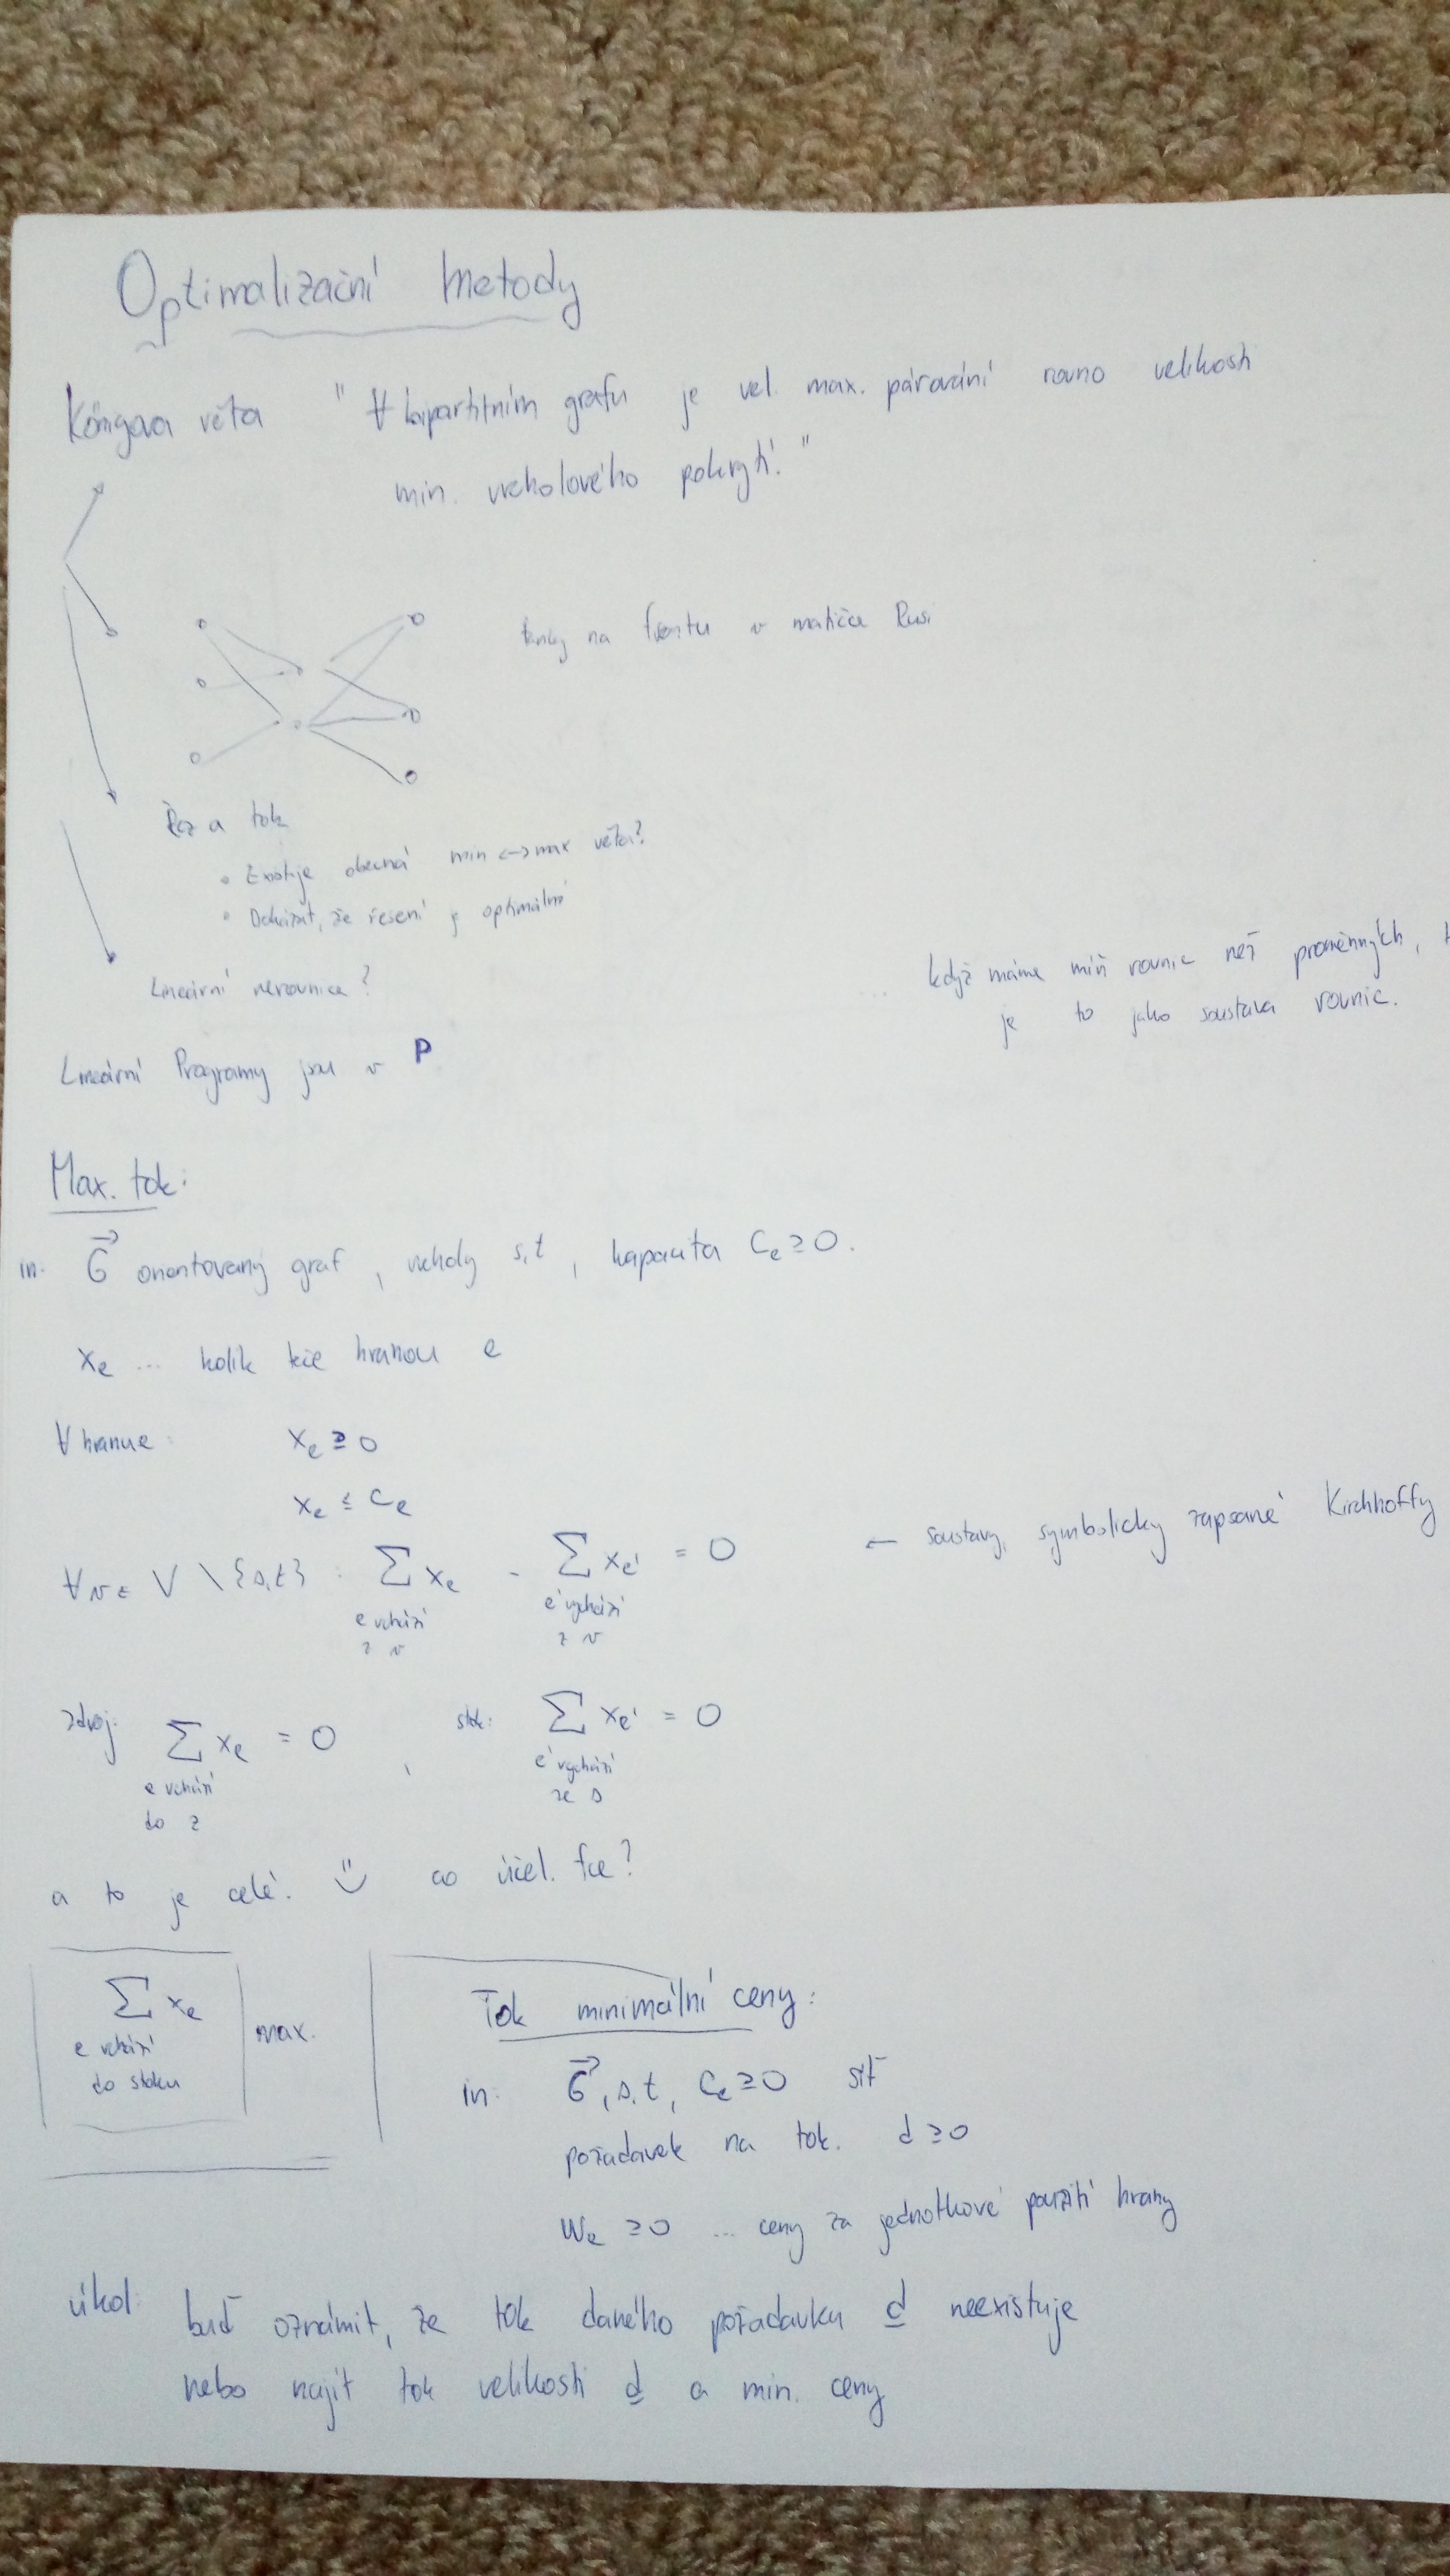 Optimalizační metody
Königova věta " ∀ bipartitním grafu je vel. max. párování rovno velikosti
min. vrcholového pokrytí. "
tanky na frontu v matičce Rusi
Řez a tok
• Existuje obecná min ↔ max věta?
• Dokázat, že řešení je optimální
Lineární nerovnice?
když máme míň rovnic než proměnných,
je to jako soustava rovnic.
Lineární Programy jsou v P.
Max. tok:
in: G⃗ orientovaný graf, vrcholy s,t, kapacita Ce ≥ 0.
xe ... kolik teče hranou e
∀ hranu e: xe ≥ 0
xe ≤ ce
∀v ∈ V \ {s,t} : ∑ xe - ∑ xe' = 0 ← soustavy, symbolicky zapsané Kirchhoffy
e vchází e' vychází
z v z v
zdroj: ∑ xe = 0 , stok: ∑ xe' = 0
e vchází e' vychází
do z ze s
a to je celé. co účel. fce?
∑ xe max.
e vchází
do stoku
Tok minimální ceny:
in: G⃗, s,t, Ce ≥ 0 síť
požadavek na tok. d ≥ 0
we ≥ 0 ... ceny za jednotkové použití hrany
úkol: buď oznámit, že tok daného požadavku d neexistuje
nebo najít tok velikosti d a min. ceny